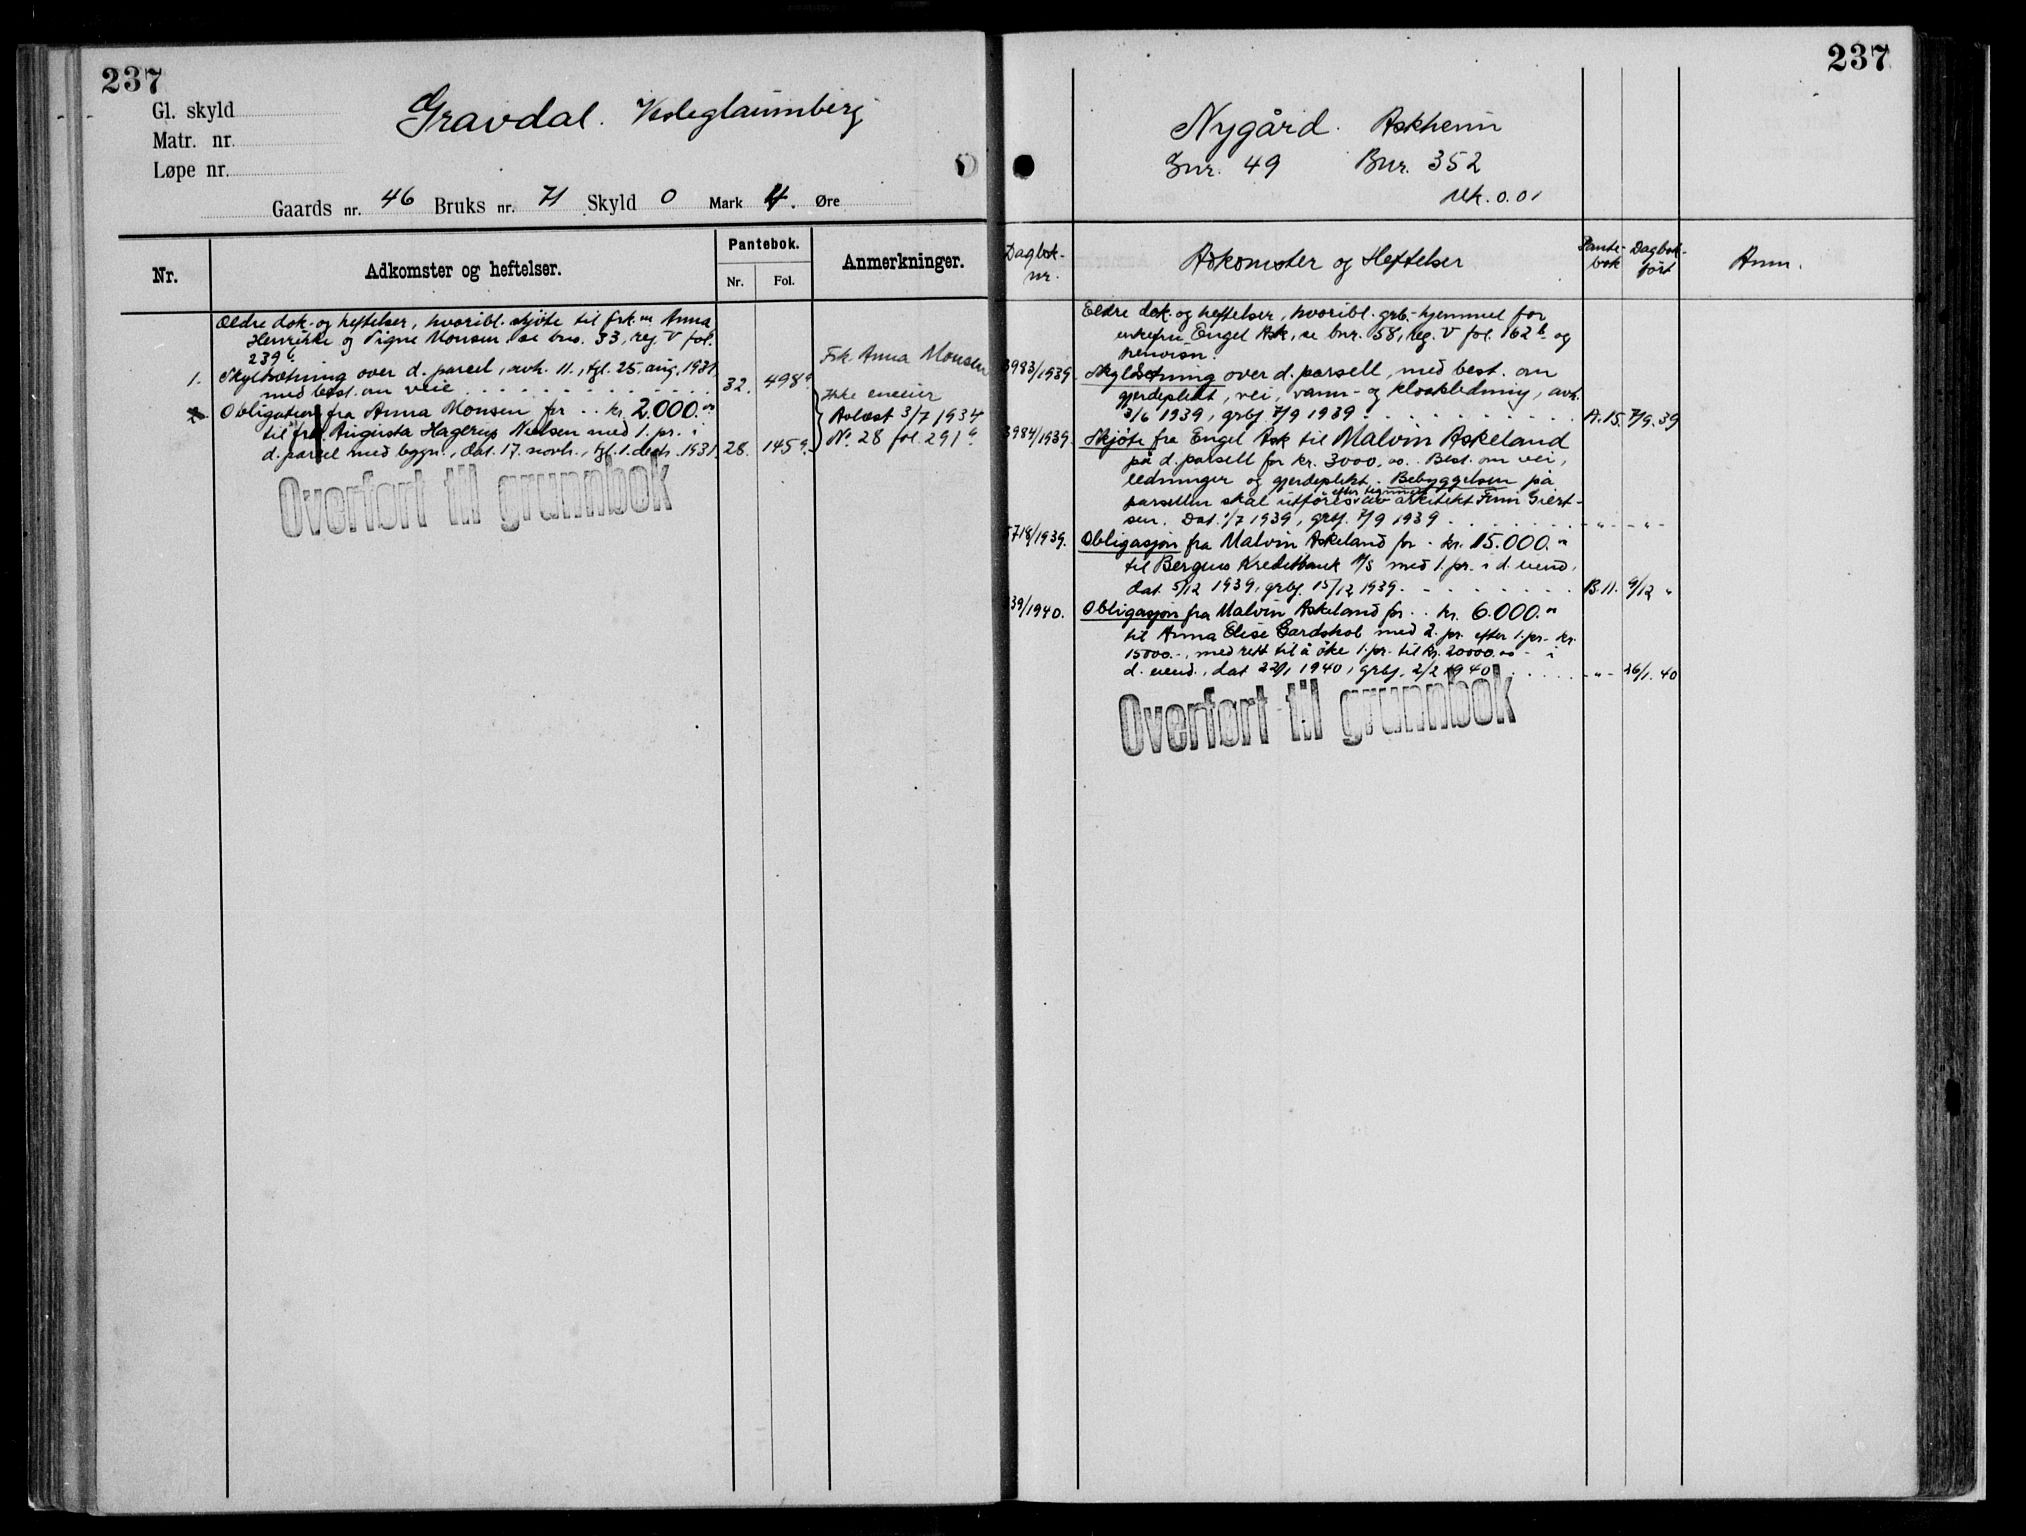 237
Gl. skyld
Matr. nr.
Løpe nr.
Gravdal. Vesleglaumberg
Gaards nr. 46 Bruks nr. 71 Skyld 0 Mark 4. Øre
Nr.
Adkomster og heftelser.
Pantebok.
Nr. Fol.
Anmerkninger.
Ældre dok. og heftelser, hvoribl. skjöte til frk.ne Anna
Henrikke og Signe Monsen se bno. 33, reg. V fol.
239a
1. Skyldsætning over d. parcel, avh. 11., tgl. 25. aug. 1931
med best. om veie 32. 498a
Obligation fra Anna Monsen for .. kr. 2.000.00
til frk. Augusta Hagerup Nielsen med 1. pr. i
d. parcel med bygn., dat. 17. novb., tgl. 1. decb. 1931 28. 145a.
Frk. Anna Monsen
ikke eneeier
Avlæst 3/7 1934
No. 28 fol. 291a
Overført til grunnbok
237
Nygård. Askheim
Gnr. 49 Bnr. 352
Mk. 0.01
Dagbok-
nr.
Adkomster og Heftelser
Pante-
bok
Dagbok-
ført
Anm.
Eldre dok. og heftelser, hvoribl. grb.-hjemmel for
enkefru Engel Ask, se bnr. 58, reg. V fol. 162b og
henvisn.
3983/1939 Skyldsetning over d. parsell, med best. om
gjerdeplikt, vei, vann- og kloakkledning, avh.
3/6 1939, grbf. 7/9 1939 A.15. 7/9. 39
3984/1939. Skjöte fra Engel Ask til Malvin Askeland
på d. parsell for kr. 3000.00. Best. om vei,
ledninger og gjerdeplikt. Bebyggelsen på
parsellen skal utföres efter tegninger av arkitekt Finn Giert-
sen. Dat. 1/7 1939, grbf. 7/9 1939 - " - - " -
5718/1939. Obligasjon fra Malvin Askeland for - kr. 15.000.00
til Bergens Kreditbank A/S med 1. pr. i d. eiend.
dat. 5/12 1939, grbf. 15/12 1939. B.11. 9/12 "
39/1940. Obligasjon fra Malvin Askeland for .. kr. 6.000.00
til Anna Elise Gardskol med 2. pr. efter 1. pr. kr.
15000.-, med rett til å öke 1. pr. til kr. 20000.00 - i
d. eiend., dat 22/1 1940, grbf. 2/2 1940 - " - 26/1. 40
Overført til grunnbok